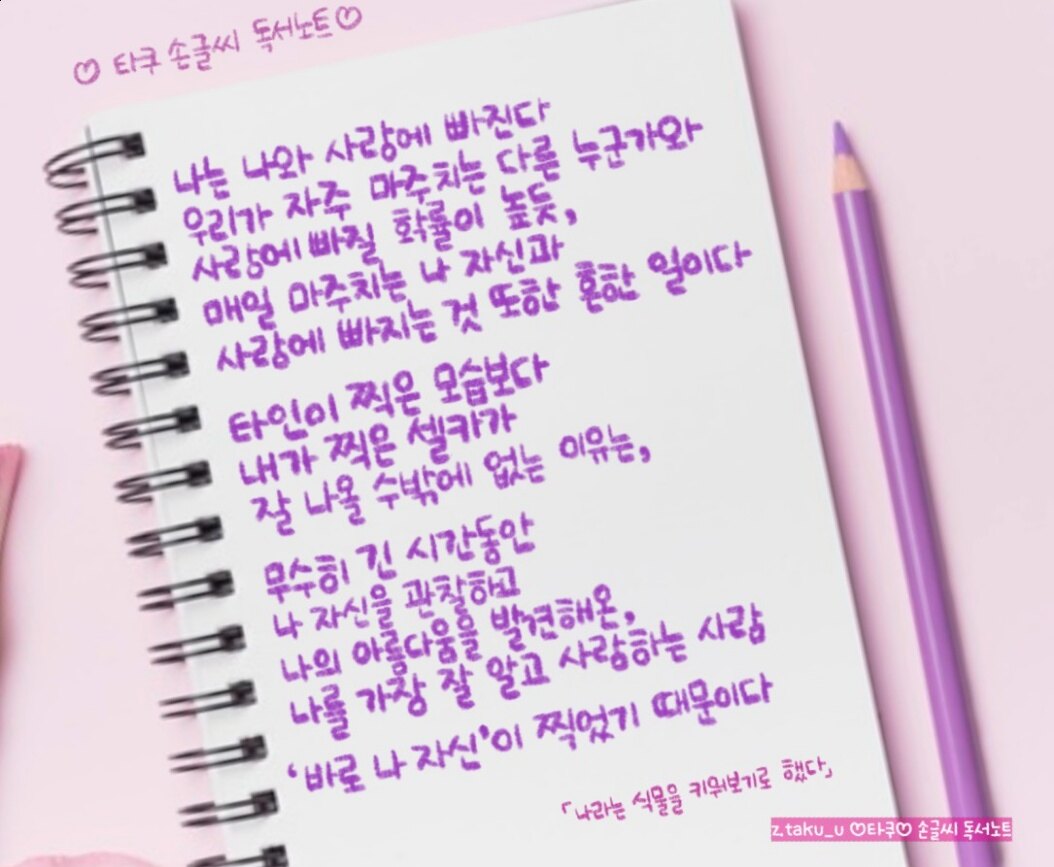 ♡ 타쿠 손글씨 독서노트♡
나는 나와 사랑에 빠진다
우리가 자주 마주치는 다른 누군가와
사랑에 빠질 확률이 높듯,
매일 마주치는 나 자신과
사랑에 빠지는 것 또한 흔한 일이다
타인이 찍은 모습보다
내가 찍은 셀카가
잘 나올 수밖에 없는 이유는,
무수히 긴 시간동안
나 자신을 관찰하고
나의 아름다움을 발견해온,
나를 가장 잘 알고 사랑하는 사람
‘바로 나 자신’이 찍었기 때문이다
「나라는 식물을 키워보기로 했다」
z.taku_u ♡타쿠♡ 손글씨 독서노트